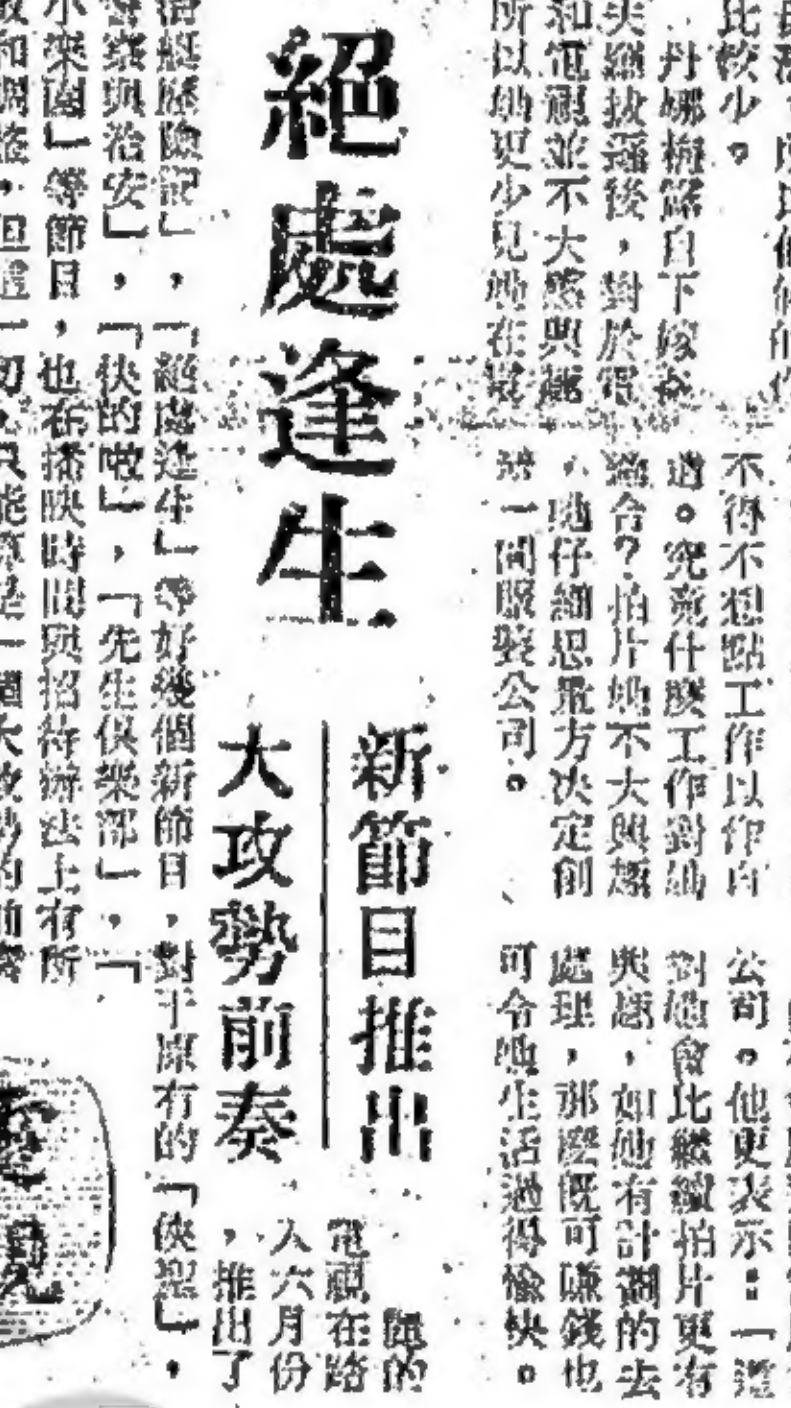 比較少。
丹娜梅露自下嫁谷
夫羅拔遜後,對於電
和電視並不大感興趣
所以她更少見她在
不得不想點工作以作自
遣。究竟什麼工作對她
適合?拍片她不大興趣
,她仔細思量方決定創
辦一間服裝公司。
公司。他更表示:「還
對她會比繼續拍片更有
興趣,如他有計劃的去
處理,那麼既可賺錢也
可令她生活過得愉快。
絕處逢生
新節目推出
大攻勢前奏
麗的
電視在踏
入六月份
,推出了
潛艇歷險記」,「絕處逢生」等好幾個新節目,對于原有的「俠聖」,
警察與治安」,「快的啦」,「先生俱樂部」,「
小樂園」等節目,也在播映時間與招待辦法上有所
和調整,但這一切,只能算是一個大攻勢的前奏